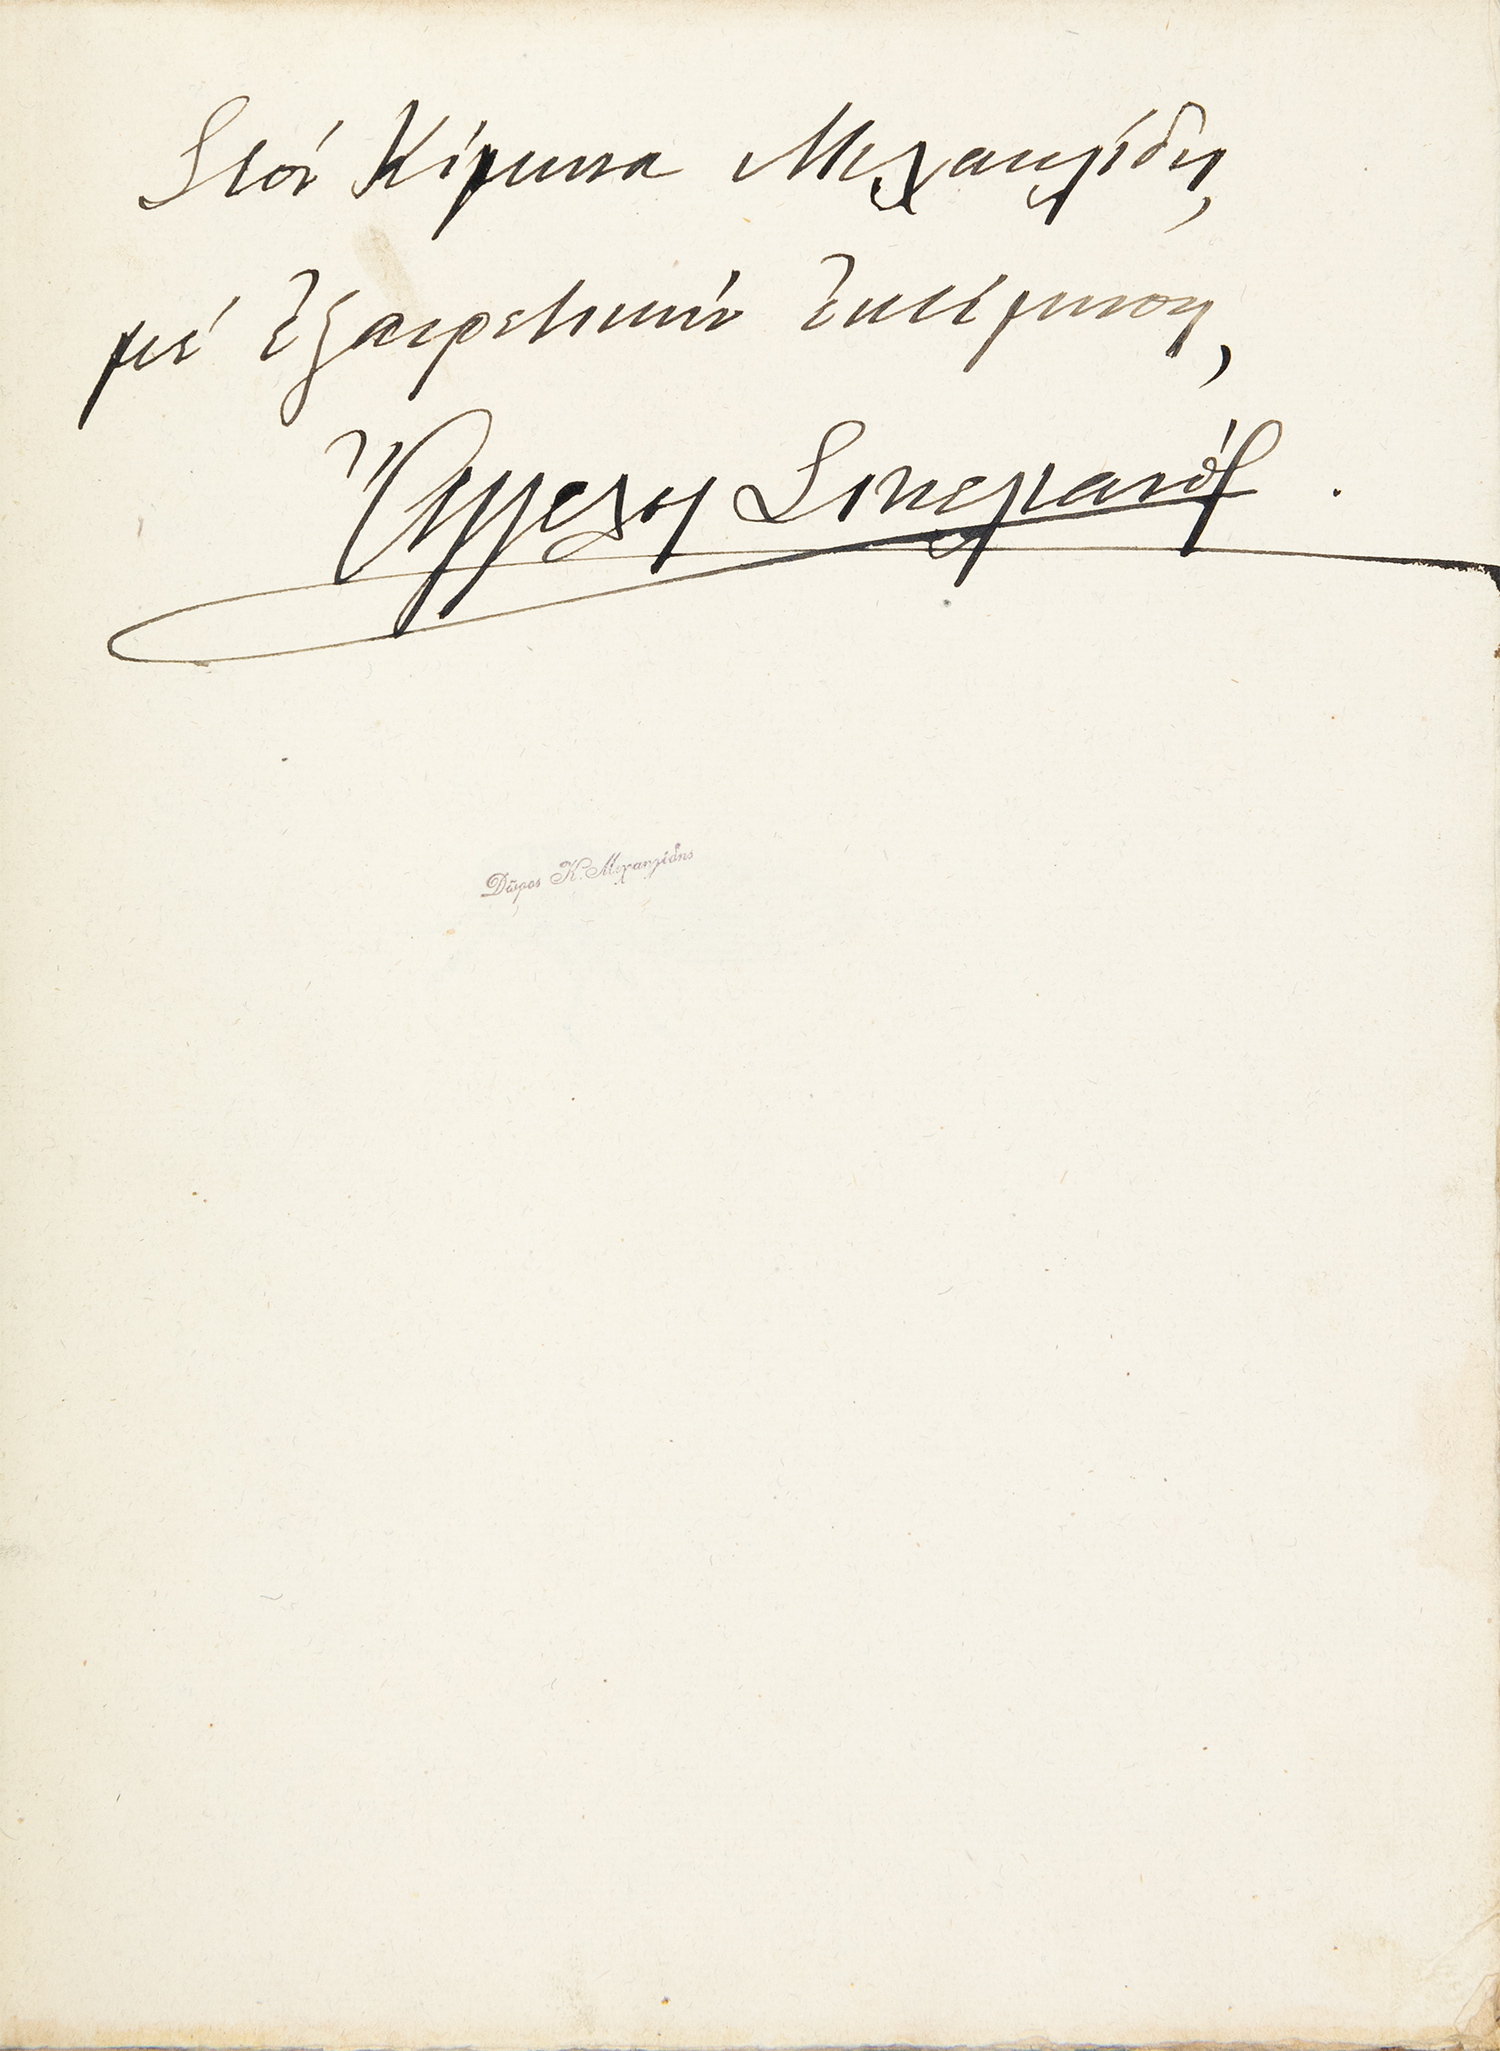 Στὸν Κίμωνα Μιχαηλίδη,
μὲ ἐξαιρετικὴν ἐκτίμηση,
Ἄγγελος Σικελιανός.
Δῶρος Κ. Μιχαηλίδης